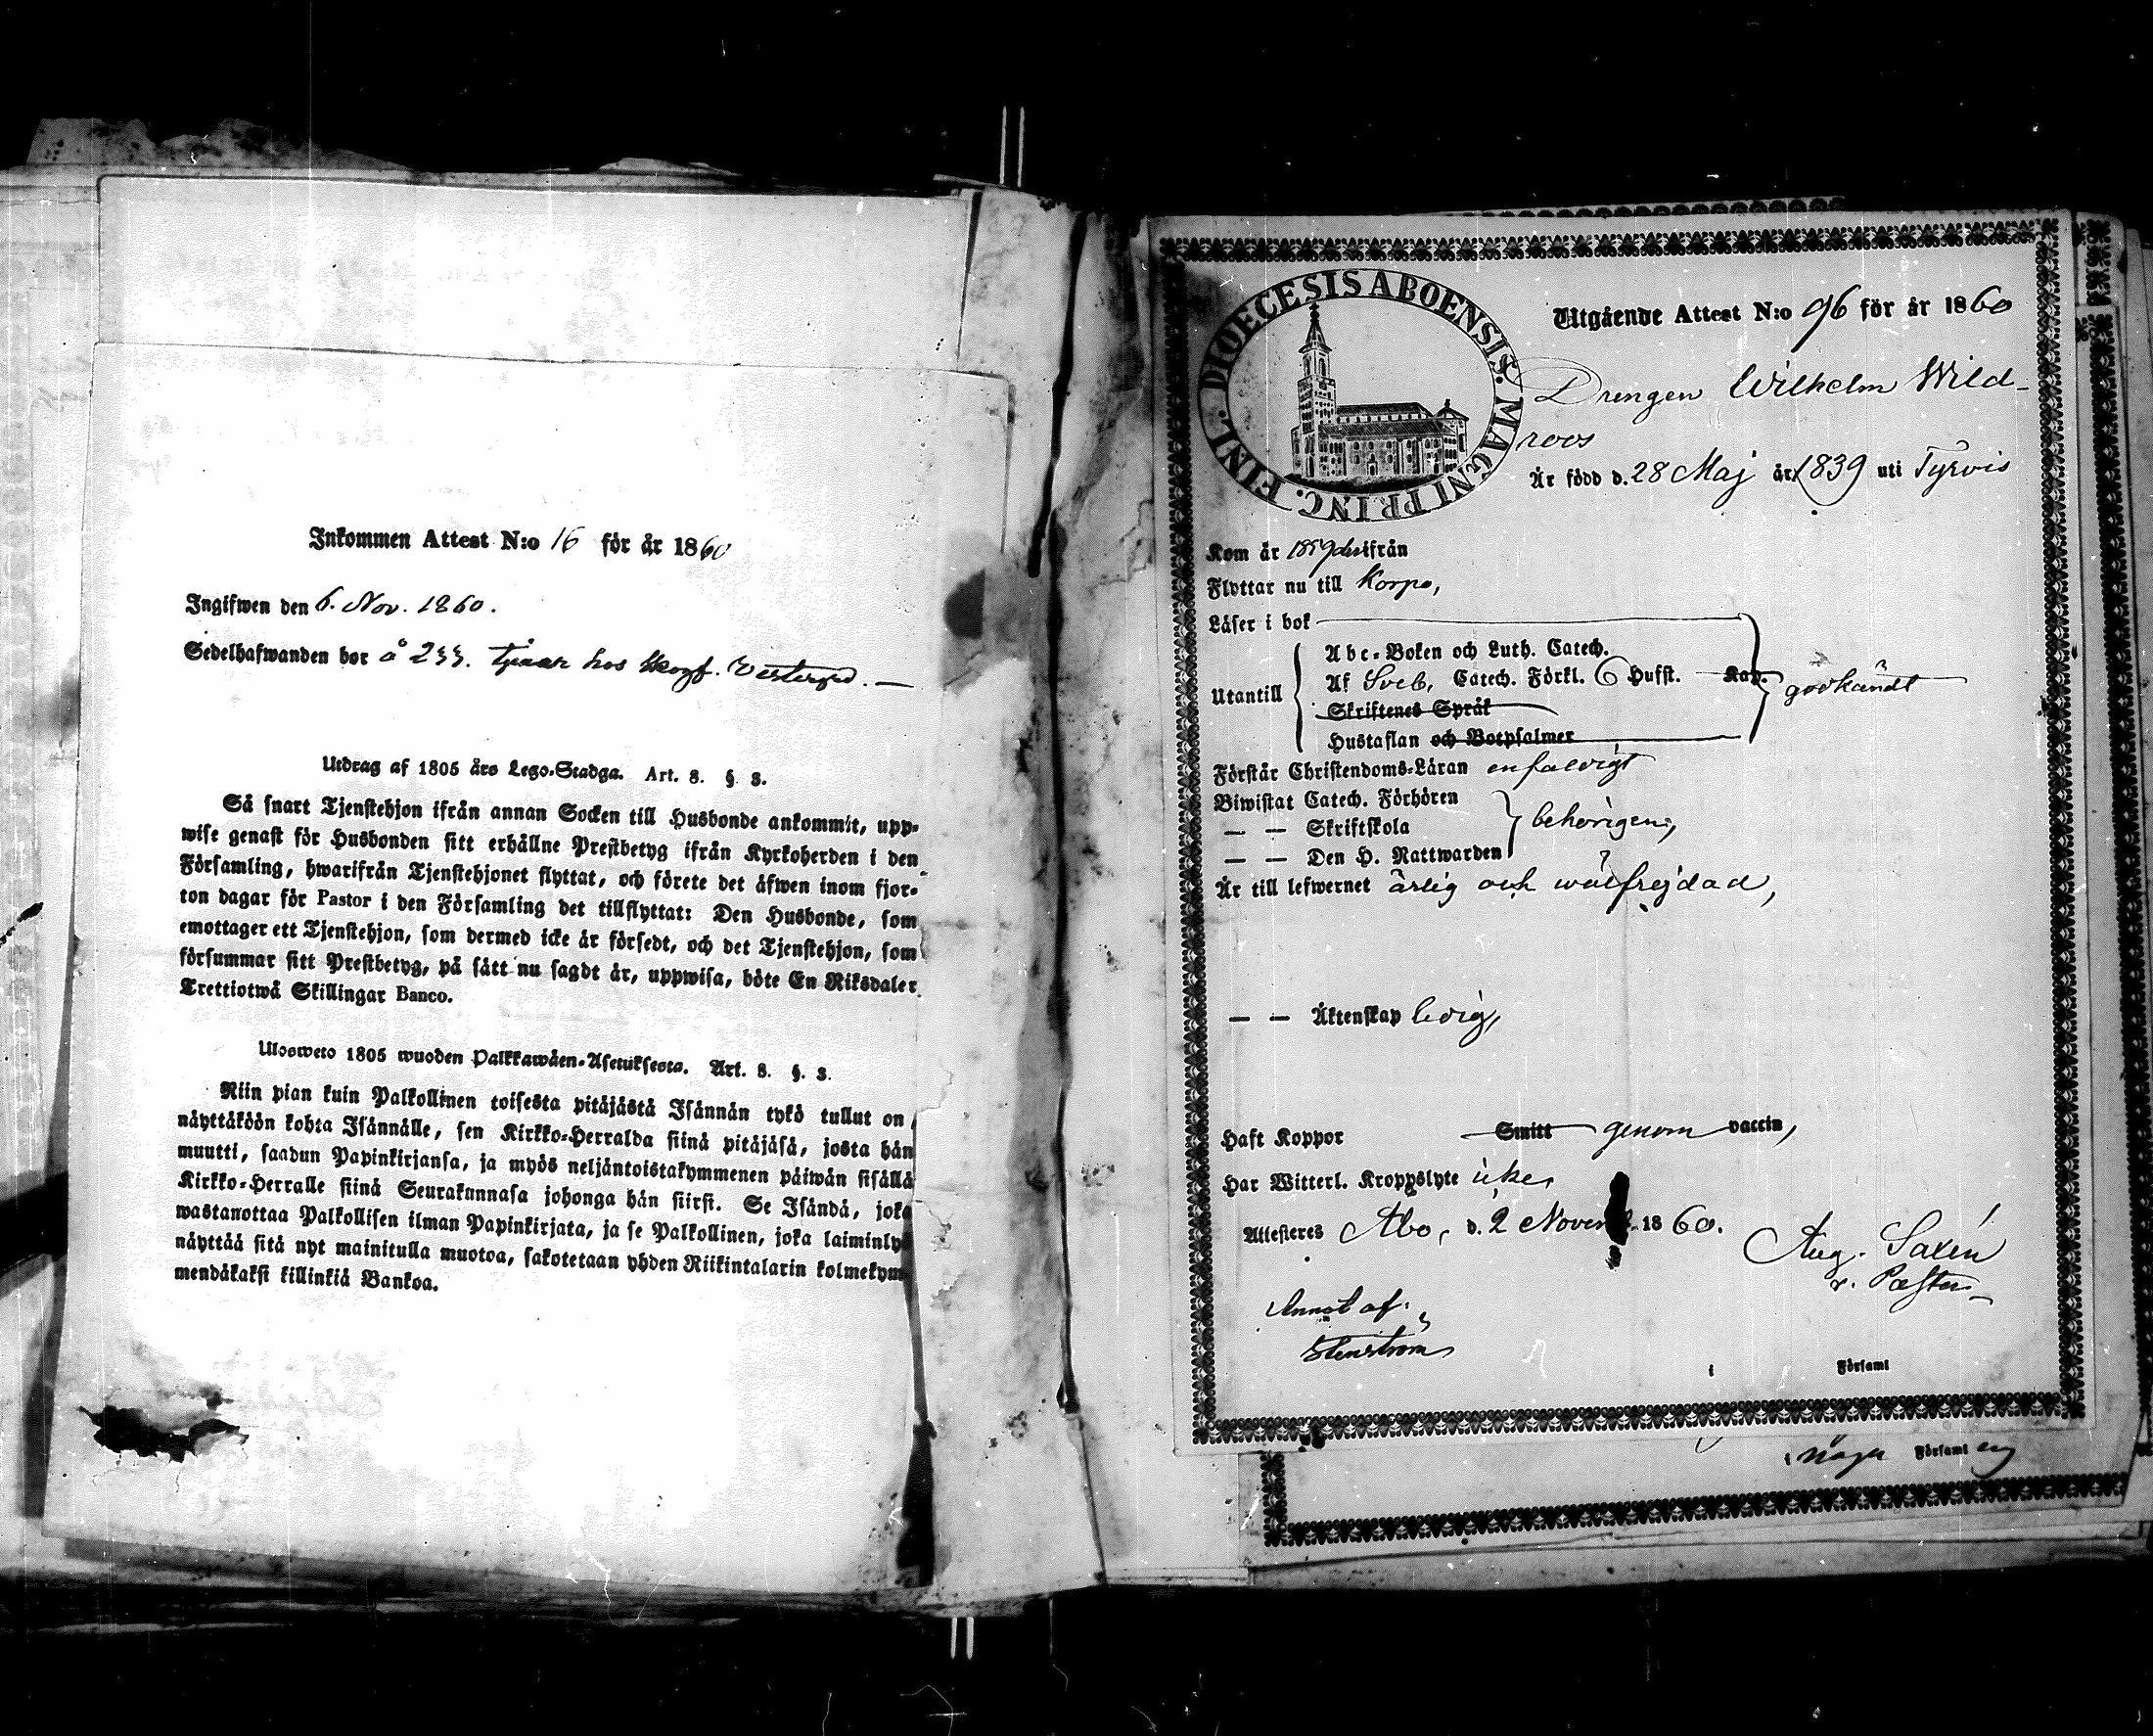 Inkommen Attest N:o 16 för år 1860
Ingifwen den 6. Nov. 1860.
Sedelhafwanden bor å 233. tjenar hos
Utdrag af 1805 års Lego-Stadga. Art. 8. §. 3.
Så snart Tjenstehjon ifrån annan Socken till Husbonde ankommit, upp-
wise genast för Husbonden sitt erhållne Prestbetyg ifrån Kyrkoherden i den
Församling, hwarifrån Tjenstehjonet flyttat, och förete det äfwen inom fjor-
ton dagar för Pastor i den Församling det tillflyttat: Den Husbonde, som
emottager ett Tjenstehjon, som dermed icke är försedt, och det Tjenstehjon, som
försummar sitt Prestbetyg, på sätt nu sagdt är, uppwisa, böte En Riksdaler
Trettiotwå Skillingar Banco.
Ulosweto 1805 wuoden Palkkawäen-Asetuksesta. Art. 8. §. 3.
Niin pian kuin Palkollinen toisesta pitäjästä Isännän tykö tullut on
näyttäköön kohta Isännälle, sen Kirkko-Herralda siinä pitäjäsä, josta hän
muutti, saadun Papinkirjansa, ja myös neljäntoistakymmenen päiwän sisällä
Kirkko-Herralle siinä Seurakunnasa johonga hän siirsi. Se Isändä, joka
wastanottaa Palkollisen ilman Papinkirjata, ja se Palkollinen, joka laiminly
näyttää sitä nyt mainitulla muotoa, sakotetaan yhden Riikintalarin kolmekym
mendäkaksi killinkiä Bankoa.
FINL. DIOECESIS ABOENSIS. MAGNI PRINC.
Utgående Attest N:o 96 för år 1860
Drengen Wilhelm Wild-
roos
Är född d. 28 Maj år 1839 uti Tyrvis
Kom år 1859 derifrån
Flyttar nu till Korpo,
Läser i bok
Utantill
Abc-Boken och Luth. Catech.
Af Sveb. Catech. Förkl. 6 Hufst. Kap.
godkändt
Skriftenes Språk
Hustaflan och Botpsalmer
Förstår Christendoms-Läran enfaldigt
Biwistat Catech. Förhören
— — Skriftskola
behörigen,
— — Den H. Nattwarden
Är till lefwernet ärlig och wälfrejdad,
— — Äktenskap ledig,
Haft Koppor Smitt genom vaccin,
Har Witterl. Kroppslyte icke,
Attesteres Åbo, d. 2 Novem 1860.
Aug. Saxén
v. Pastor
Annot af
Stenström
i Församl
i Församl